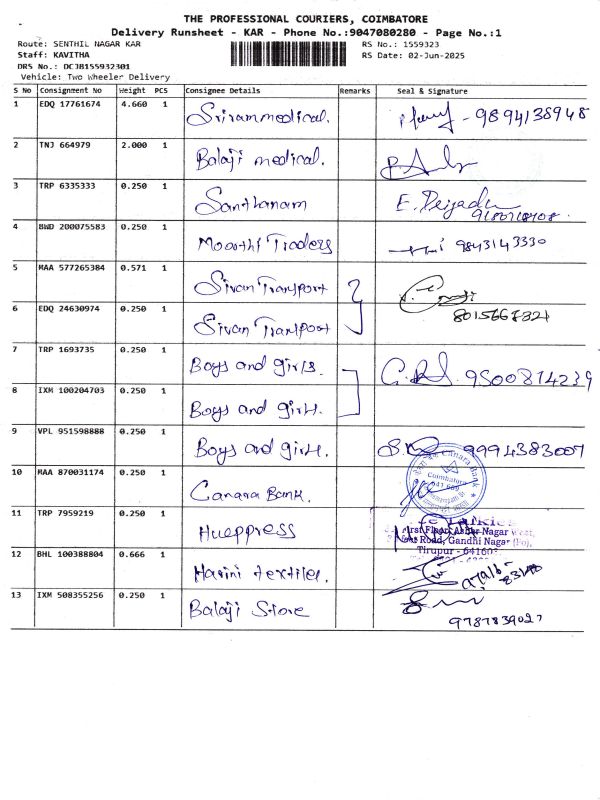 THE PROFESSIONAL COURIERS, COIMBATORE
Delivery Runsheet - KAR - Phone No.:9047080280 - Page No.:1
Route: SENTHIL NAGAR KAR RS No.: 1559323
Staff: KAVITHA RS Date: 02-Jun-2025
DRS No.: DCJB155932301
Vehicle: Two Wheeler Delivery
S No Consignment No Weight PCS Consignee Details Remarks Seal & Signature
1 EDQ 17761674 4.660 1 Srirammedical. - 9894138948
2 TNJ 664979 2.000 1 Balaji medical.
3 TRP 6335333 0.250 1 Santhanam E.
4 BWD 200075583 0.250 1 Moorthi Traders 9843143330
5 MAA 577265384 0.571 1 Sivan Transport
6 EDQ 24630974 0.250 1 Sivan Transport
7 TRP 1693735 0.250 1 Boys and girls. 9500814239
8 IXM 100204703 0.250 1 Boys and girls.
9 VPL 951598888 0.250 1 Boys and girls. 9994383007
10 MAA 870031174 0.250 1 Canara Bank. Canara Bank
Coimbatore
11 TRP 7959219 0.250 1 Hueppress
First Floor, Nagar West,
Road, Gandhi Nagar (Po),
Tirupur - 64160
12 BHL 100388804 0.666 1 Harini textiles.
13 IXM 508355256 0.250 1 Balaji Store